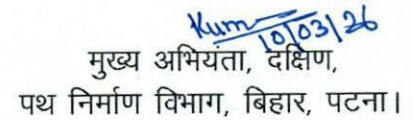 Kum
10/03/26
मुख्य अभियंता, दक्षिण,
पथ निर्माण विभाग, बिहार, पटना।